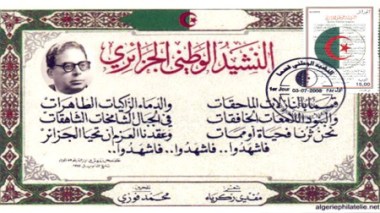 النشيد الوطني الجزائري
قسما بالنازلات الماحقات والدماء الزاكيات الطاهرات
والبنود اللامعات الخافقات في الجبال الشامخات الشاهقات
نحن ثرنا فحياة أو ممات وعقدنا العزم أن تحيا الجزائر
فاشهدوا.. فاشهدوا.. فاشهدوا..
مفدي زكرياء
محمد فوزي
1er Jour
15,00
algeriephilatelie.net